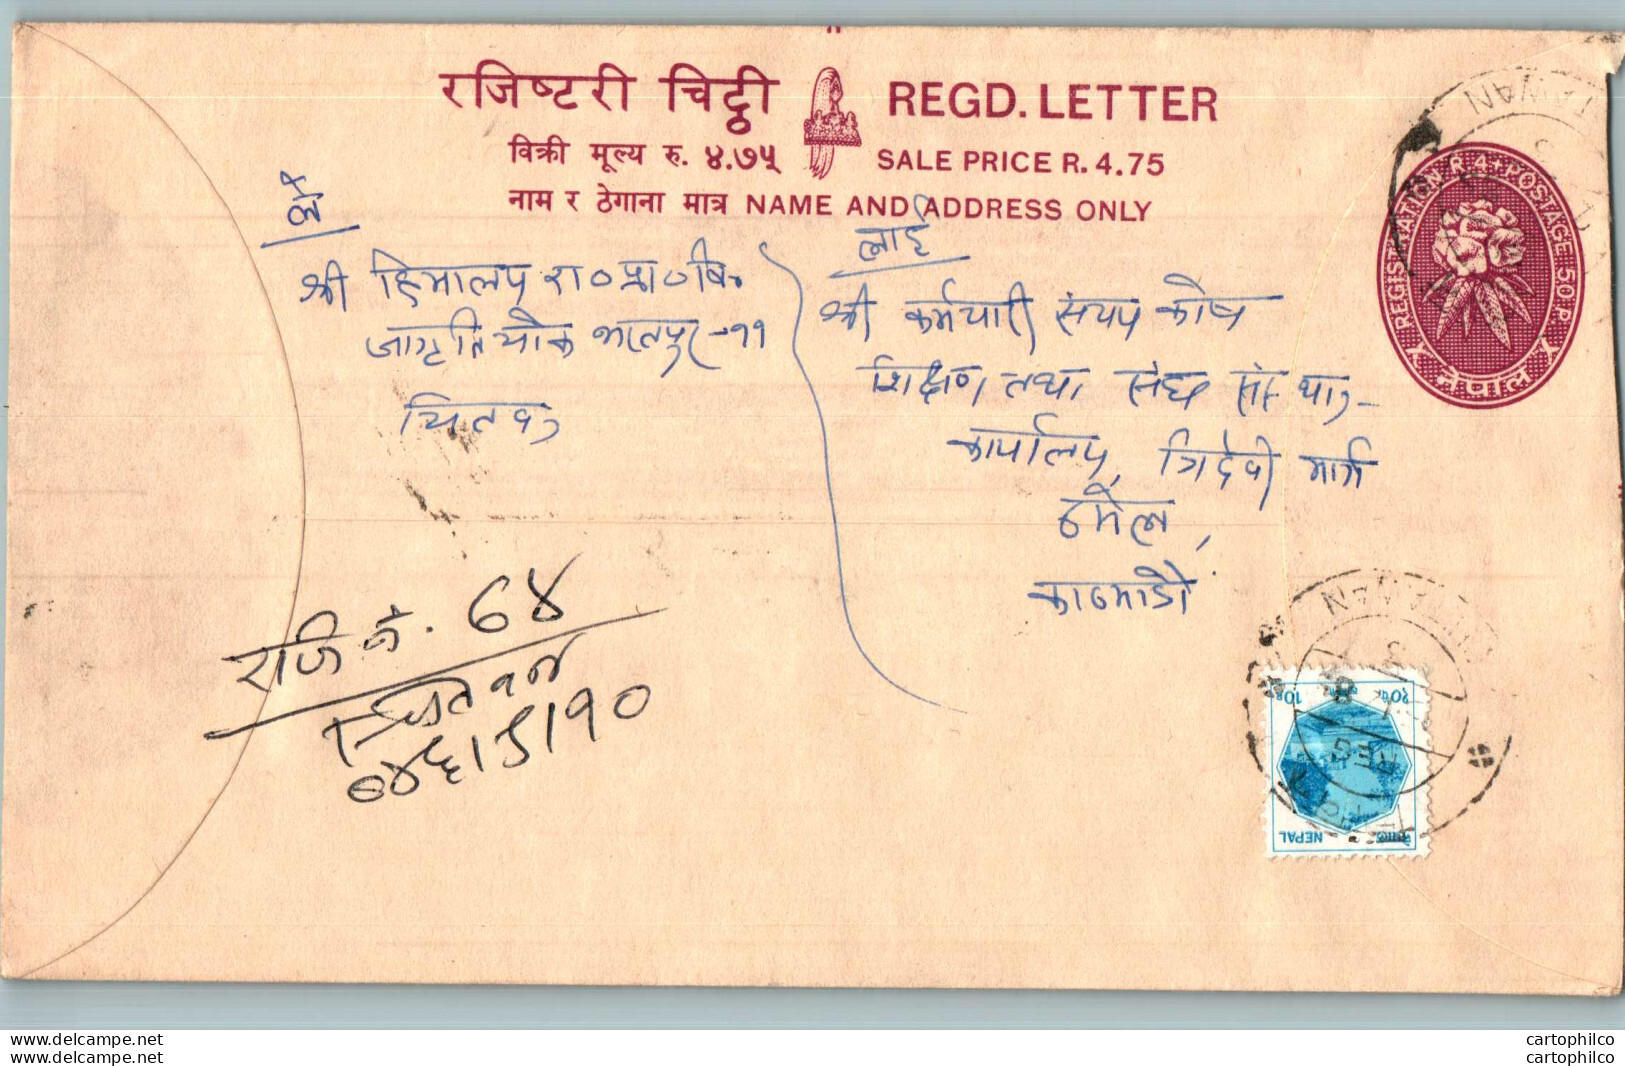 रजिष्टरी चिट्ठी REGD. LETTER
विक्री मूल्य रु. ४.७५ SALE PRICE R. 4.75
नाम र ठेगाना मात्र NAME AND ADDRESS ONLY
REGISTRATION R.4+POSTAGE 50 P.
नेपाल
TAWAN
ले
श्री हिमालय रा०प्रा०वि.
जागृति चोक भरतपुर-११
चितवन
लाई
श्री कर्मचारी संचय कोष
शिक्षण तथा संघ संस्था
कार्यालय, त्रिदेवी मार्ग
ठमेल,
काठमाडौं
रजि नं. ६४
चितवन
०४६।८।१०
CHITAWAN
REG
१० रु
10R
NEPAL
नेपाल
www.delcampe.net
www.delcampe.net
cartophilco
cartophilco